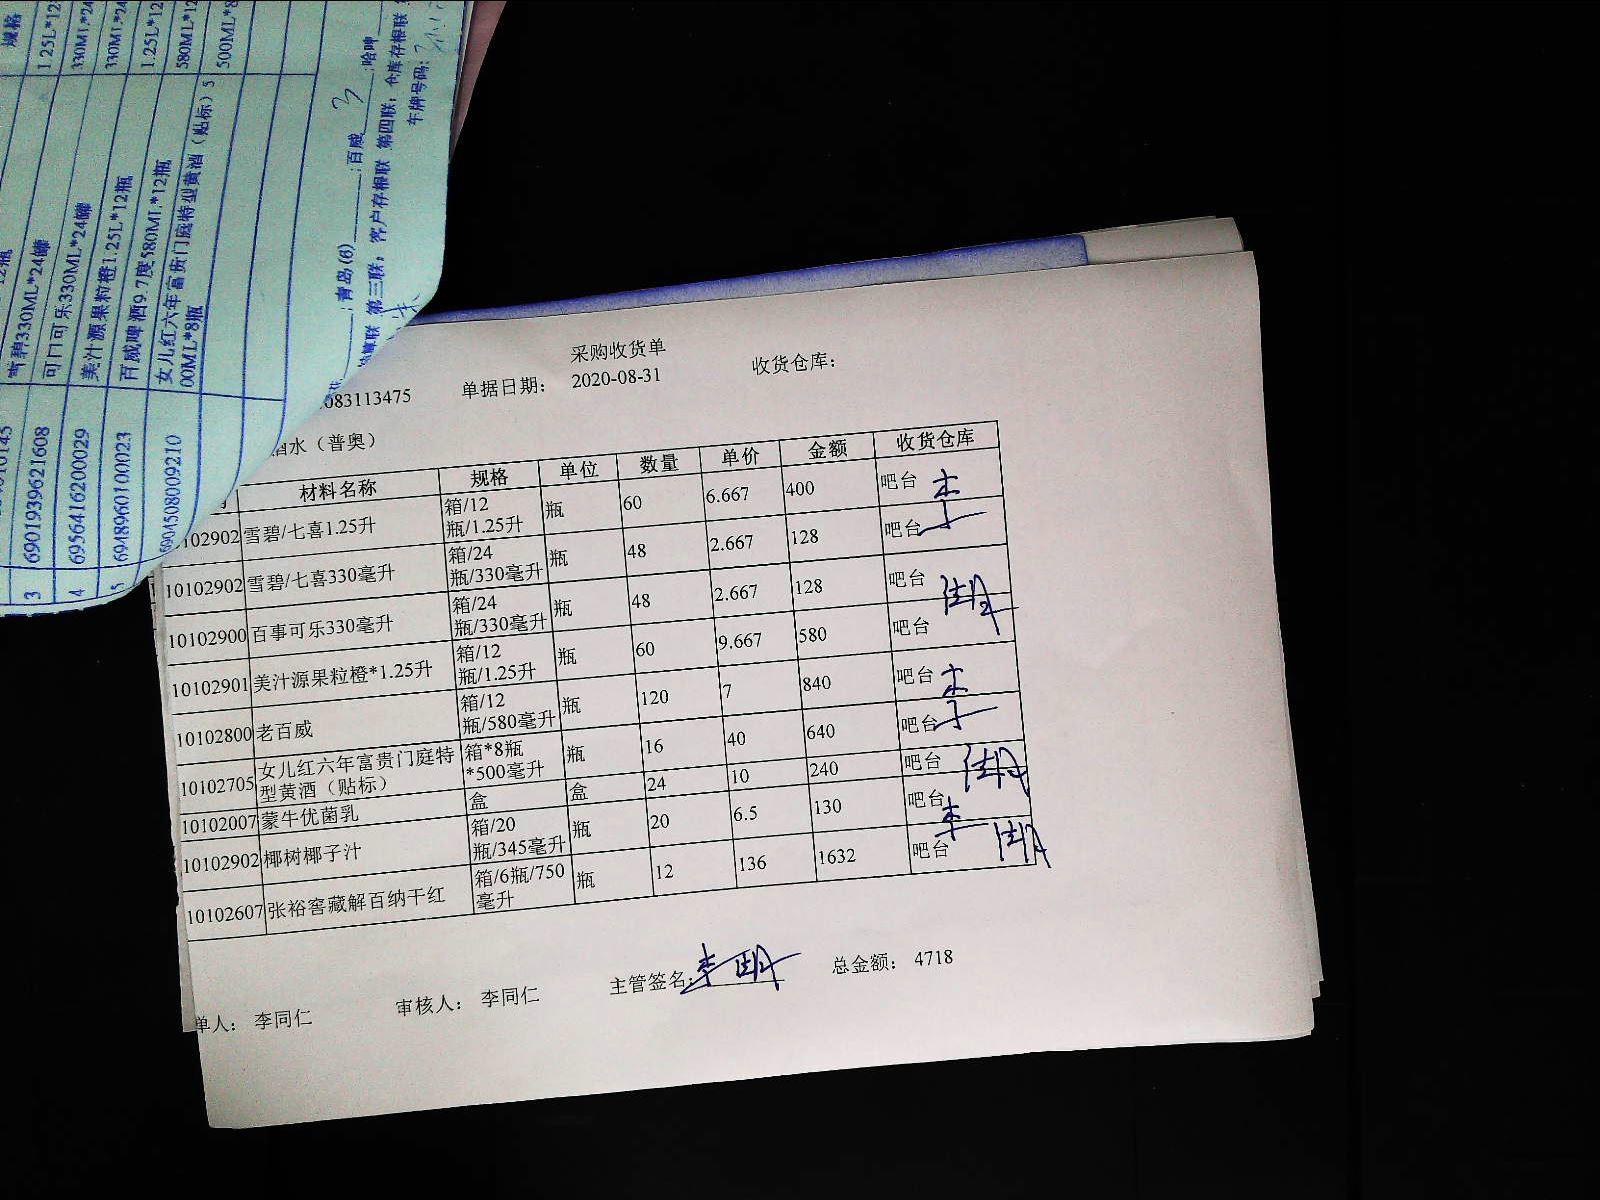 规格
1.25L*12
330ML*24
330ML*24
1.25L*12
580ML*12
500ML*8
雪碧330ML*24罐
可口可乐330ML*24罐
美汁源果粒橙1.25L*12瓶
百威啤酒9.7度580ML*12瓶
女儿红六年富贵门庭特型黄酒（贴标）5
00ML*8瓶
3 6901939621608
4 6956416200029
5 6948960100023
6904508009210
;青岛(6) ;百威 3 ;哈啤
第三联：客户存根联 第四联：仓库存根联
车牌号码:
采购收货单
083113475 单据日期： 2020-08-31 收货仓库：
酒水（普奥）
材料名称 规格 单位 数量 单价 金额 收货仓库
10102902 雪碧/七喜1.25升 箱/12瓶/1.25升 瓶 60 6.667 400 吧台
10102902 雪碧/七喜330毫升 箱/24瓶/330毫升 瓶 48 2.667 128 吧台
10102900 百事可乐330毫升 箱/24瓶/330毫升 瓶 48 2.667 128 吧台
10102901 美汁源果粒橙*1.25升 箱/12瓶/1.25升 瓶 60 9.667 580 吧台
10102800 老百威 箱/12瓶/580毫升 瓶 120 7 840 吧台
10102705 女儿红六年富贵门庭特型黄酒（贴标） 箱*8瓶*500毫升 瓶 16 40 640 吧台
10102007 蒙牛优菌乳 盒 盒 24 10 240 吧台
10102902 椰树椰子汁 箱/20瓶/345毫升 瓶 20 6.5 130 吧台
10102607 张裕窖藏解百纳干红 箱/6瓶/750毫升 瓶 12 136 1632 吧台
单人： 李同仁 审核人： 李同仁 主管签名: 总金额： 4718